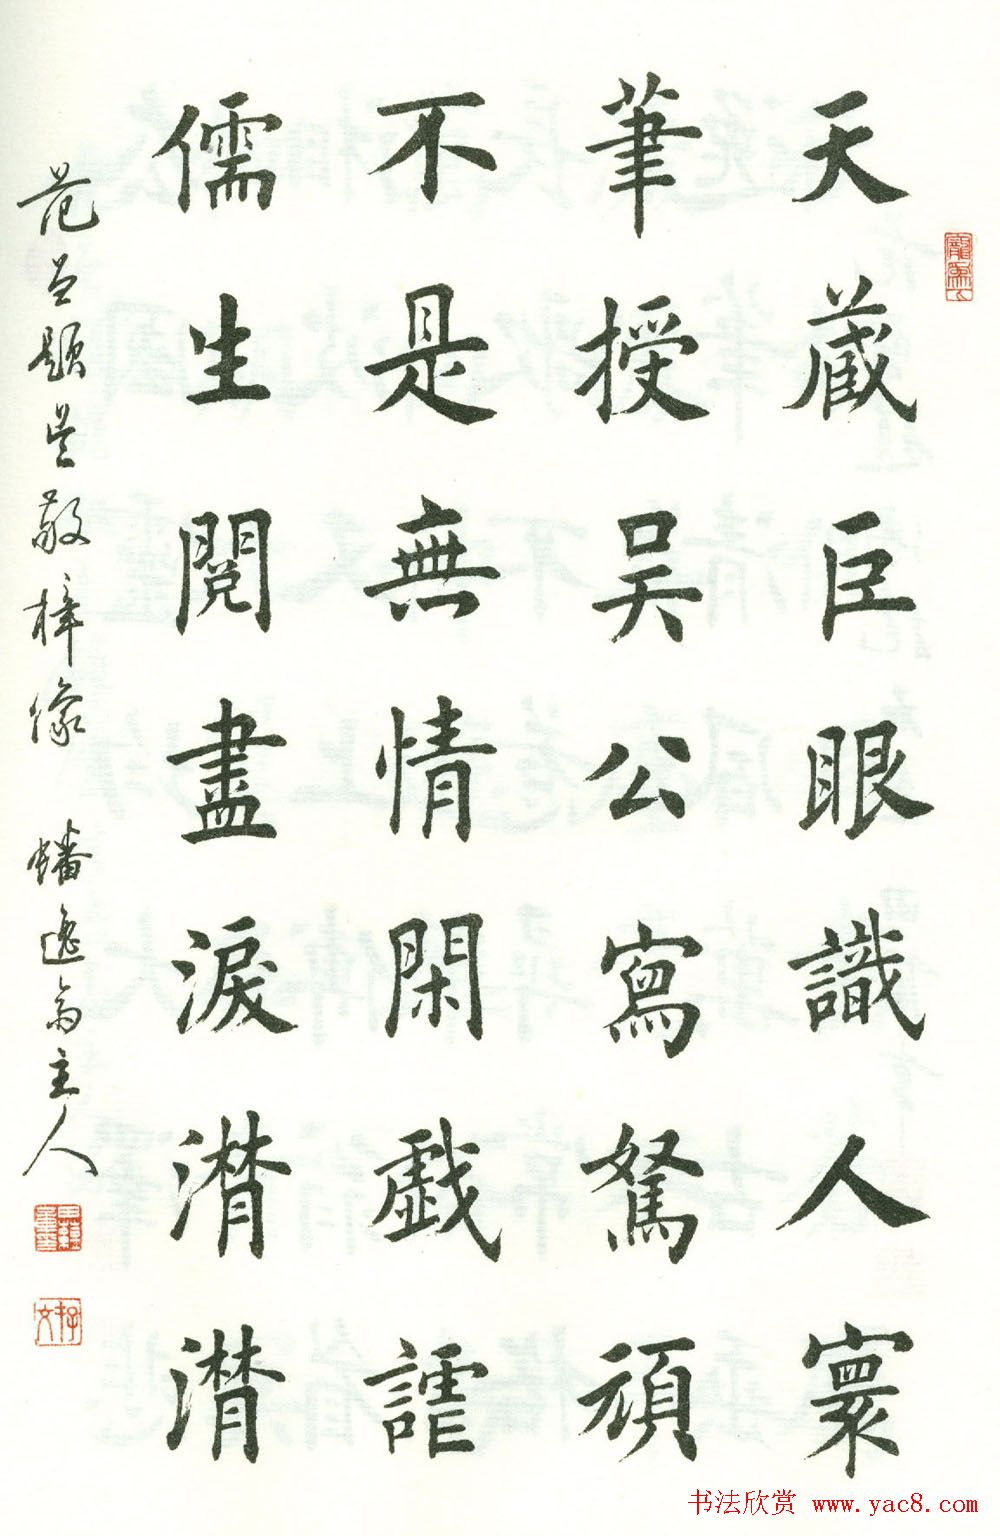 天藏巨眼識人寰
筆授吴公寫駑頑
不是無情閑戲謔
儒生閱盡淚潸潸
范曾題吴敬梓像 蟠逸齋主人
书法欣赏 www.yac8.com